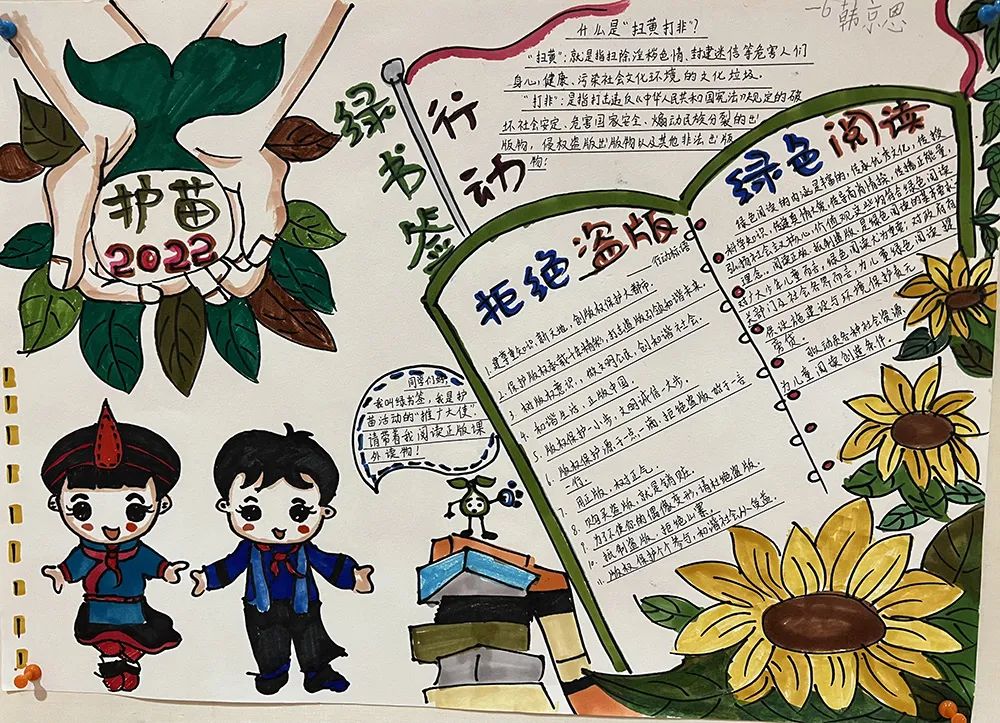 一6 韩京思
什么是"扫黄打非"?
"扫黄":就是指扫除淫秽色情、封建迷信等危害人们
身心健康、污染社会文化环境的文化垃圾.
"打非":是指打击违反《中华人民共和国宪法》规定的破
坏社会安定、危害国家安全、煽动民族分裂的出
版物,侵权盗版出版物以及其他非法出版
物!
绿书签
行动
护苗
2022
拒绝盗版
行动标语
1.建尊重知识新天地,创版权保护大都市.
2.保护版权承载千年精粹,打击盗版引领和谐未来.
3.树版权意识,做文明公民,创和谐社会.
4.和谐生活,正版中国.
5.版权保护一小步,文明诚信一大步.
6.版权保护源于一点一滴,拒绝盗版始于一言
一行.
7.用正版,树正气.
8.购买盗版,就是销赃.
9.为了不使您的偶像变形,请杜绝盗版.
10.抵制盗版,拒绝山寨.
11.版权保护个个参与,和谐社会人人受益.
绿色阅读
绿色阅读的内涵是丰富的,传承优秀文化,传授
科学知识,
弘扬社会主义核心价值观这些均符合绿色阅读
理念.阅读正版,抵制盗版,是绿色阅读的基本要求
对广大少年儿童而言,绿色阅读尤为重要,对政府有
关部门及社会各界而言,为儿童绿色阅读提
供设施建设与环境保护责无
旁贷.
驱动员各种社会资源,
为儿童阅读创造条件.
同学们好,
我叫绿书签,我是护
苗活动的"推广大使".
请带着我阅读正版课
外读物!